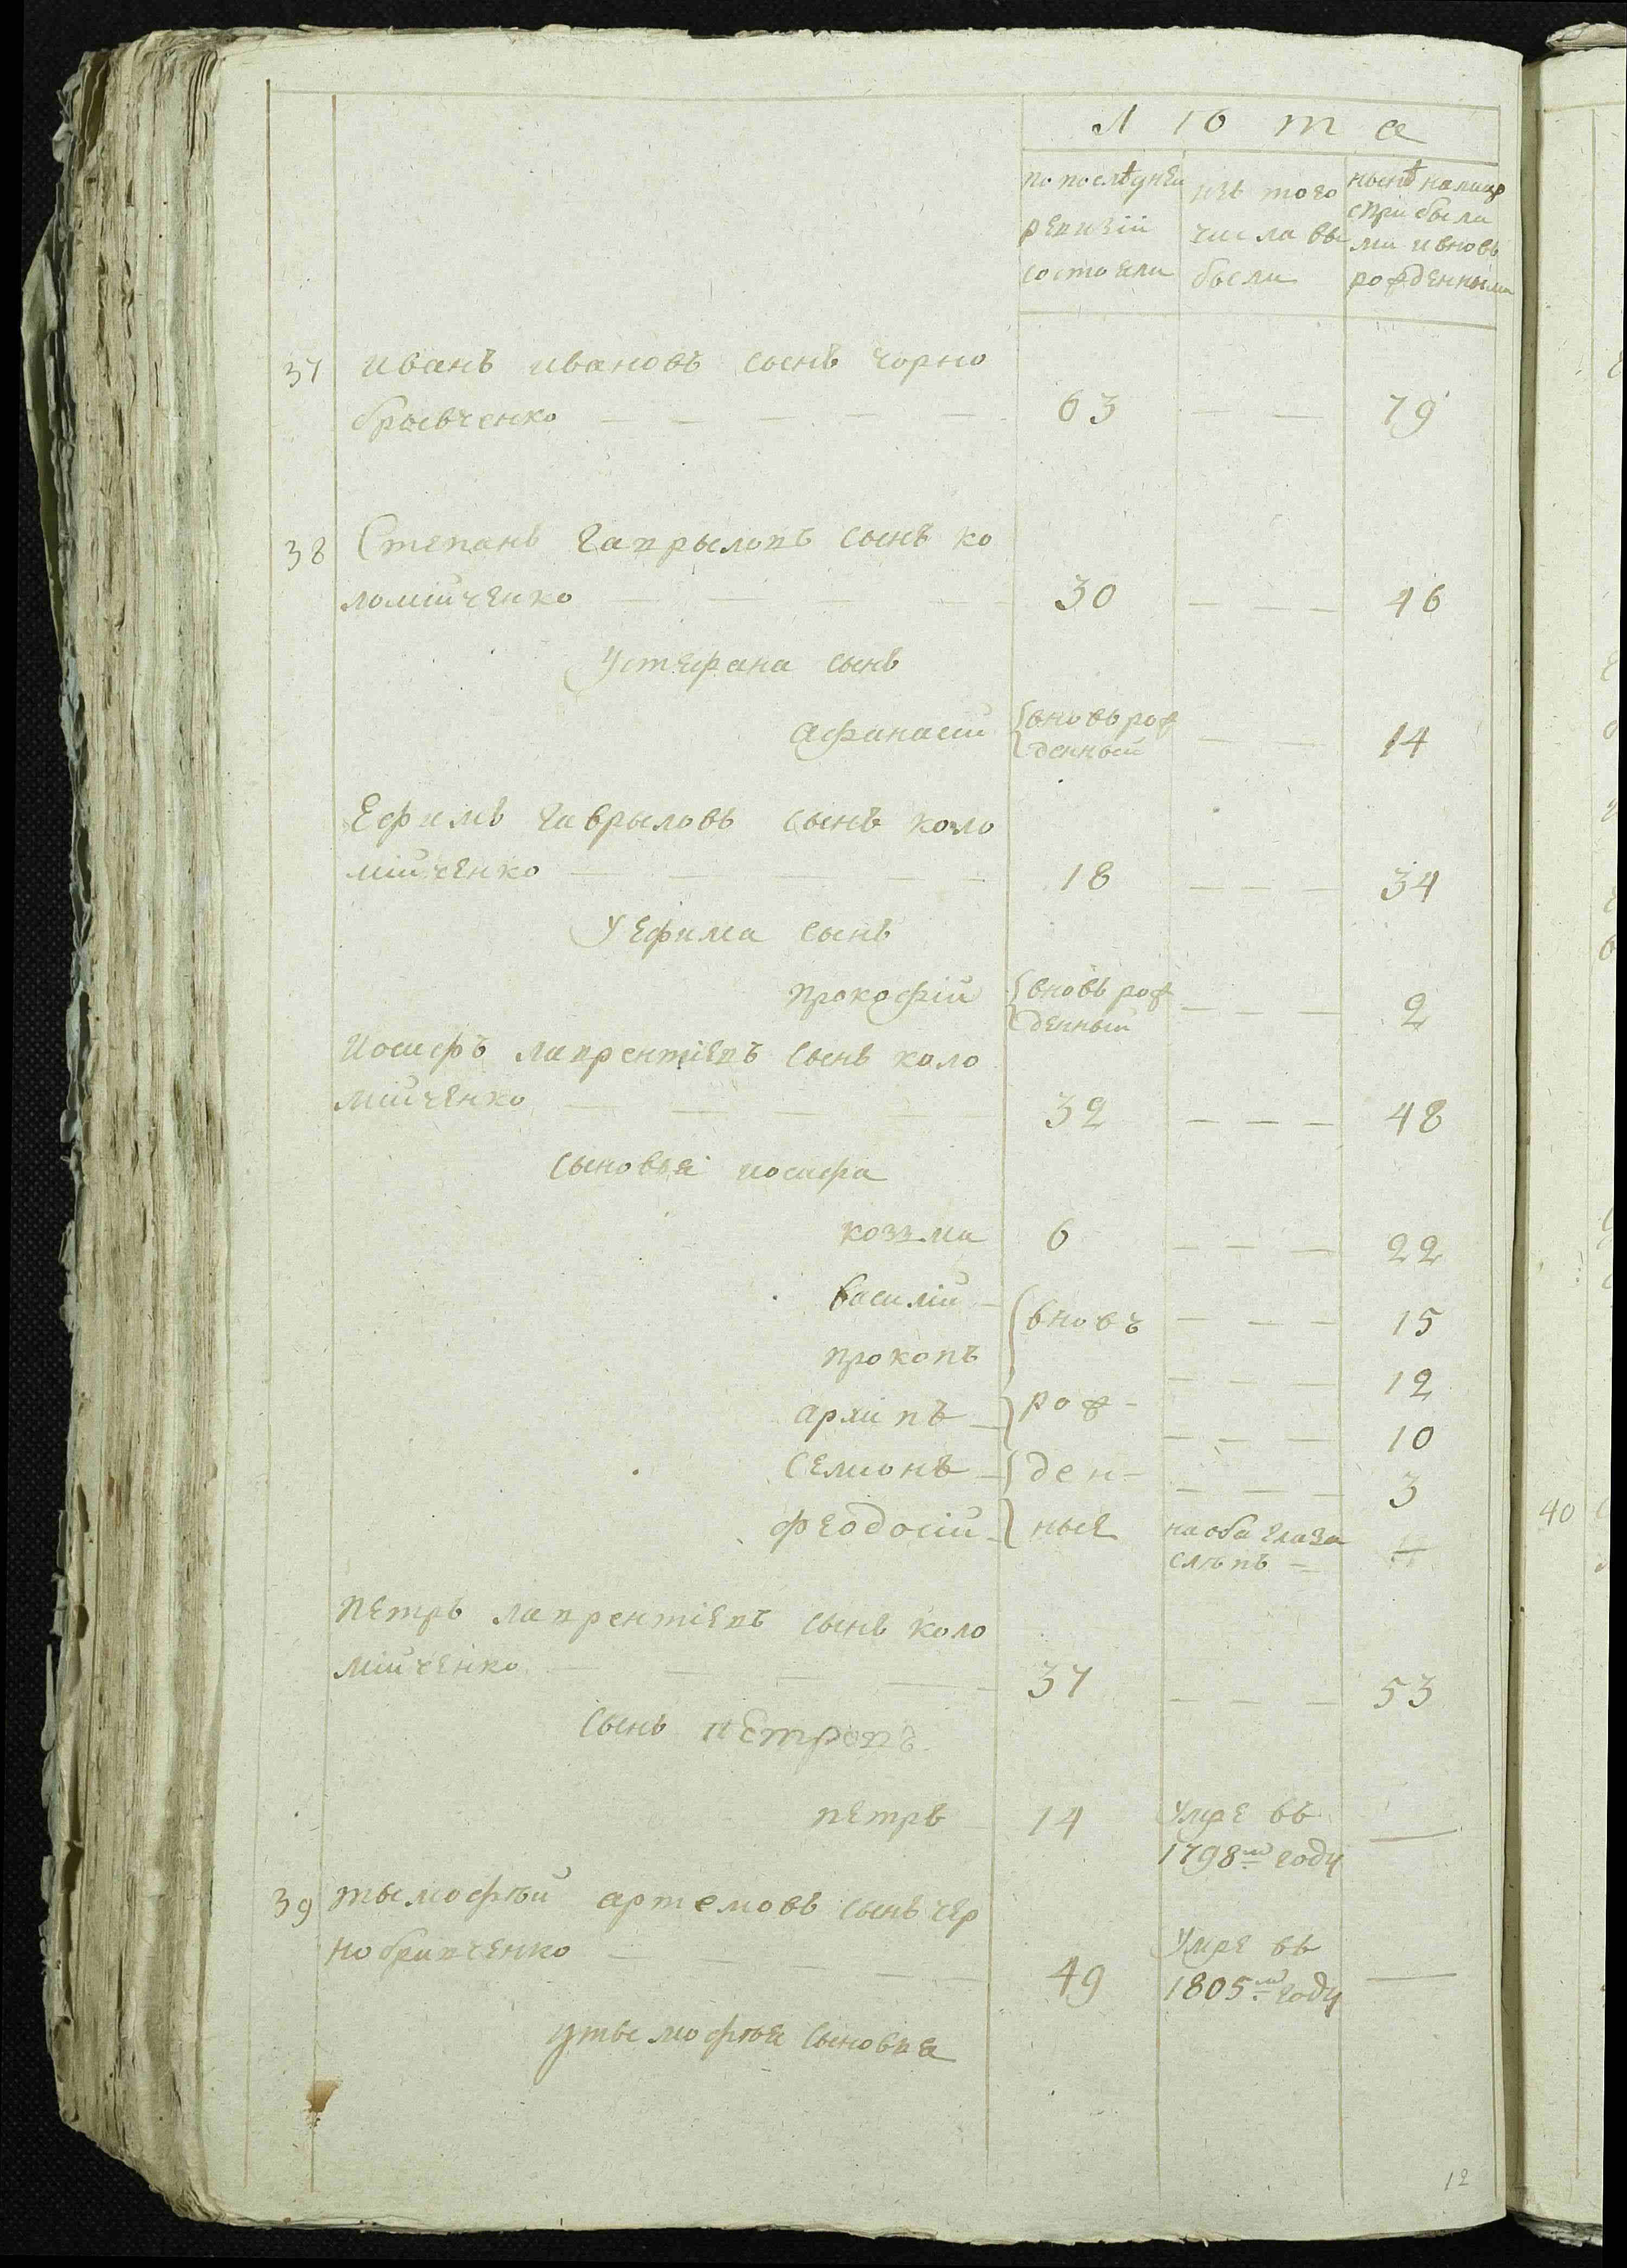 лѣта
по последней ревизіи состояли
изъ того числа выбыли
нынѣ на лицо с прибылими и вновь рожденными
37 иванъ ивановъ сынъ чорно
брывченко — — — — — 63 — — 79
38 Степанъ гаврыловъ сынъ ко
ломійченко — — — — 30 — — — 46
У стефана сынъ
афанасій вновь рожденный — — 14
Ефимъ гаврыловъ сынъ коло
мійченко — — — — — 18 — — — 34
У Ефима сынъ
прокофій вновь рожденный — — — 2
Иосифъ лаврентіевъ сынъ коло
мійченко — — — — 32 — — — 48
сыновья иосифа
козма 6 — — — 22
василій — вновъ — — — 15
прокопъ — — — 12
архипъ — рож- — — — 10
Семионъ — ден- — — — 3
феодосій — ные на оба глаза слѣпъ
петръ лаврентіевъ сынъ коло
мійченко — — — — 37 — — — 53
сынъ петровъ
петръ 14 Умре въ 1798м году —
39 тымофѣй артемовъ сынъ чер
нобривченко — — — — — 49 Умре въ 1805м году —
у тымофѣя сыновья
12
40